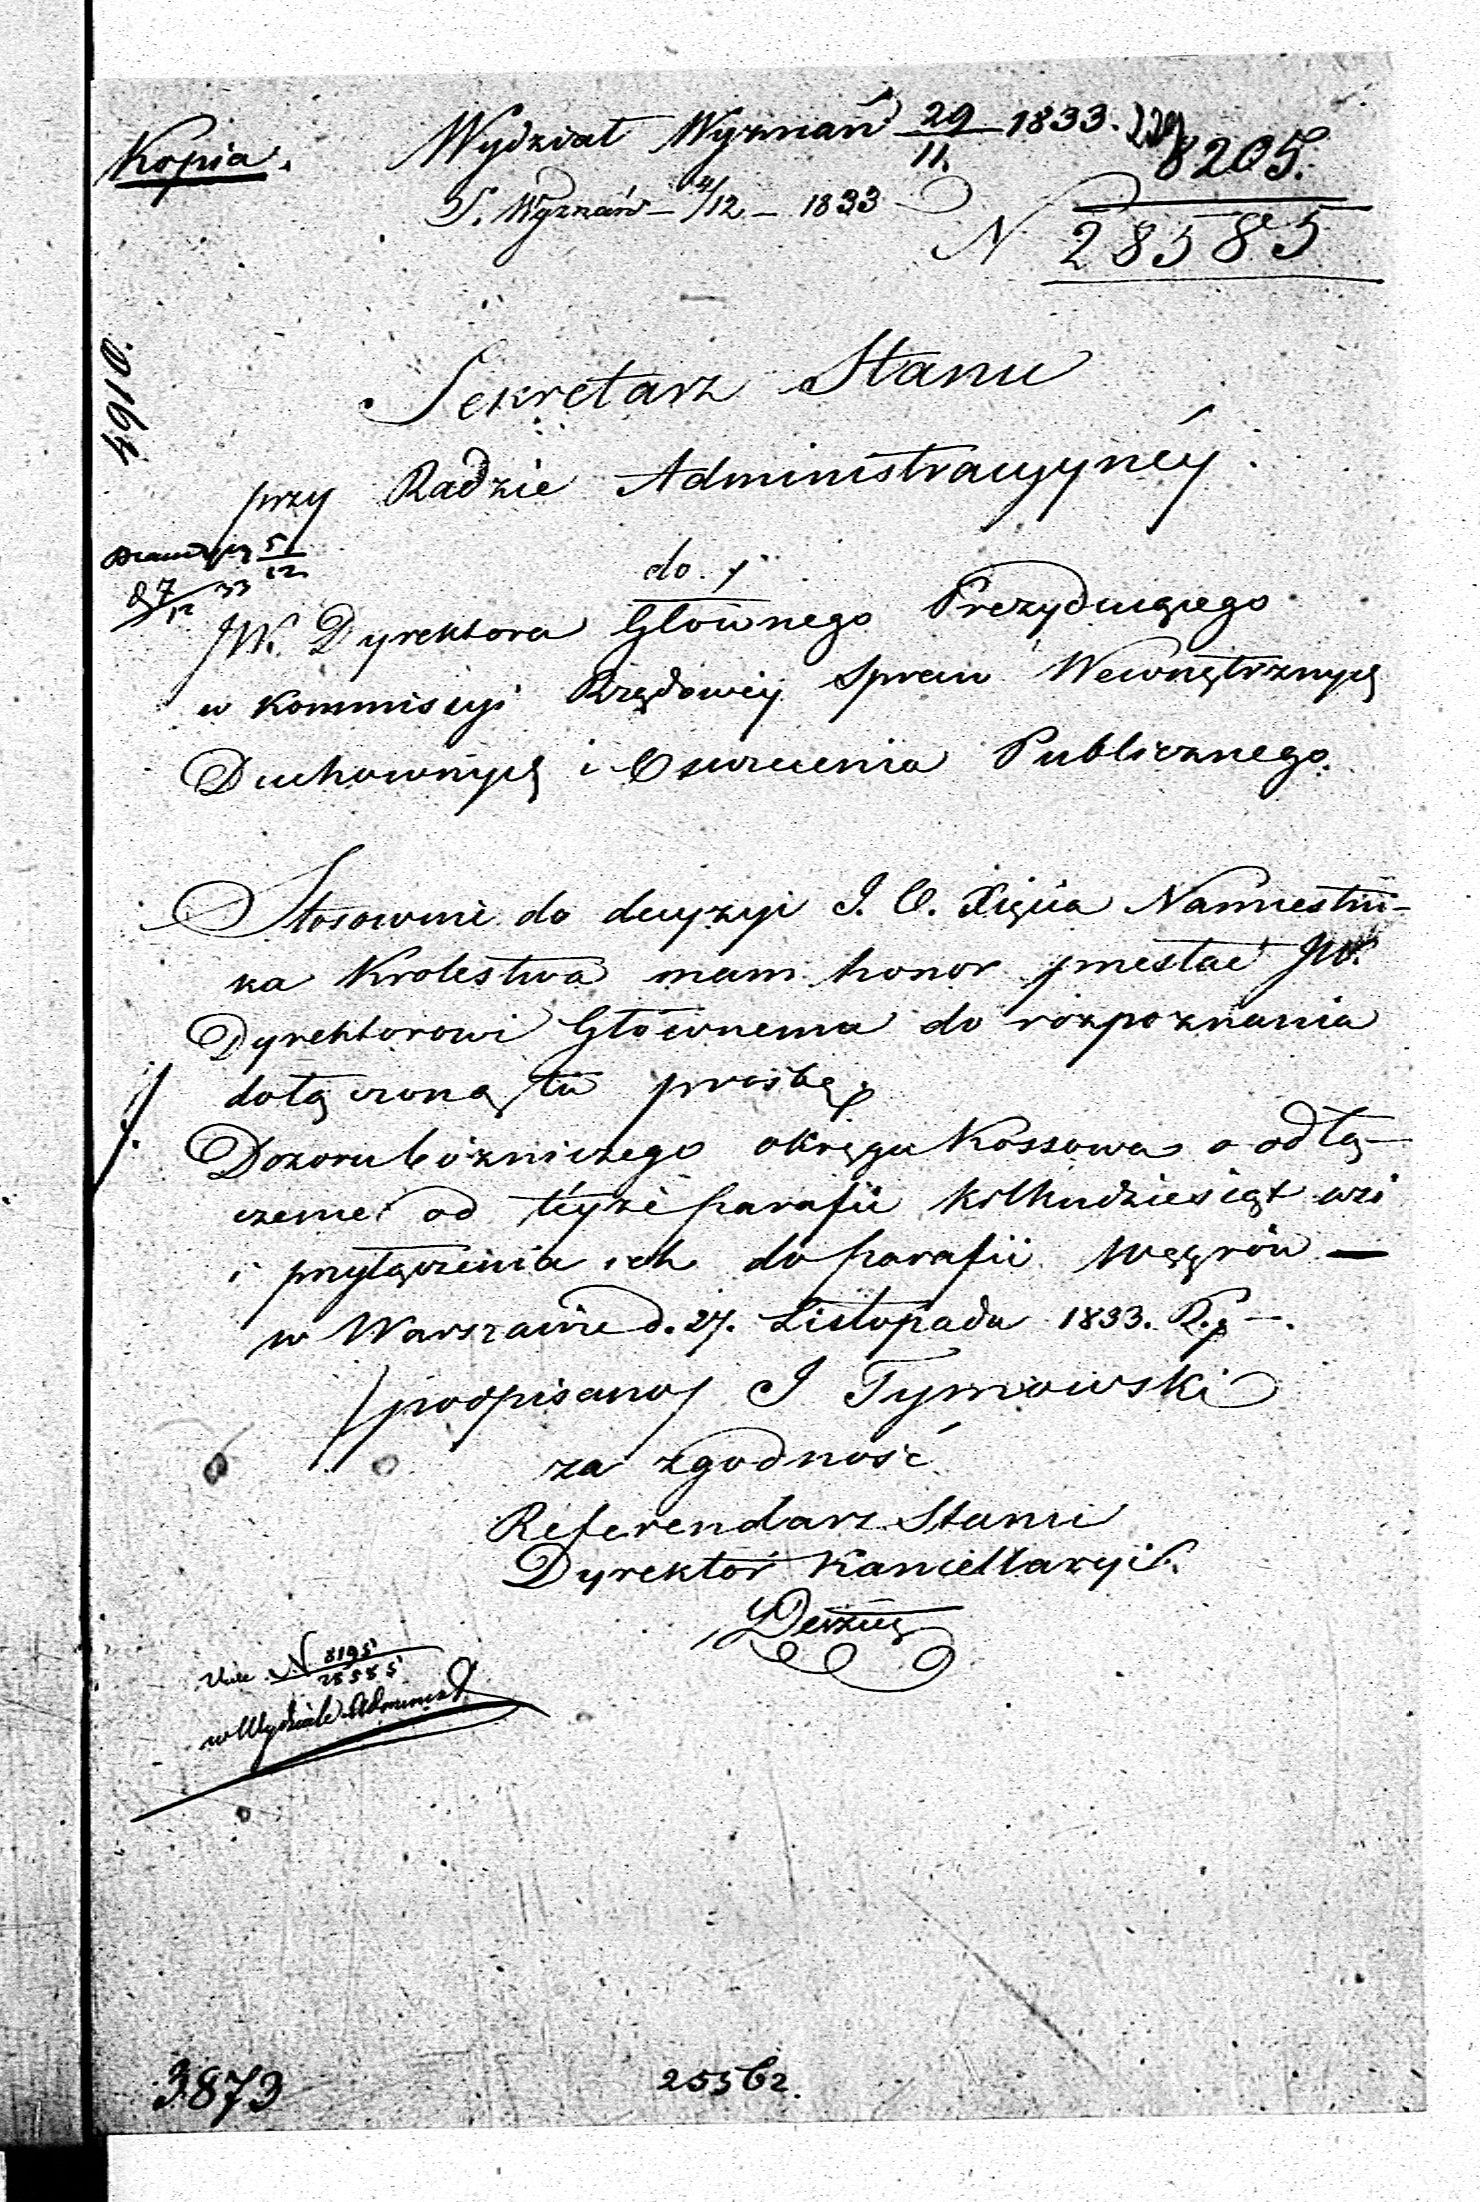 Kopia.
Wydział Wyznań 29/11. 1833.
229
8205.
S. Wyznań – 4/12 – 1833
N 28585
4910.
Sekretarz Stanu
przy Radzie Administracyynéy
5/12
7/12 33
do
JW. Dyrektora Głównego Prezyduiącego
w Kommissyi Rządowéy Spraw Wewnętrznych
Duchownych i Oswiecenia Publicznego.
Stosownie do decyzyi J. O. Xięcia Namiestni-
ka Krolestwa mam honor przesłać JW.
Dyrektorowi Głównemu do rozpoznania
dołączoną tu prosbę
Dozoru bóżniczego okręgu Kossowa o odłą-
czenie od téyże parafii kilkudziesiąt wsi
i przyłączenia ich do parafii Węgrów —
w Warszawie d. 27. Listopada 1833. R. –.
/podpisano/ J Tymowski
za zgodność
Referendarz Stanu
Dyrektor Kancellaryi
N 8195/28585
w Wydziale Administ.
3873
25562.